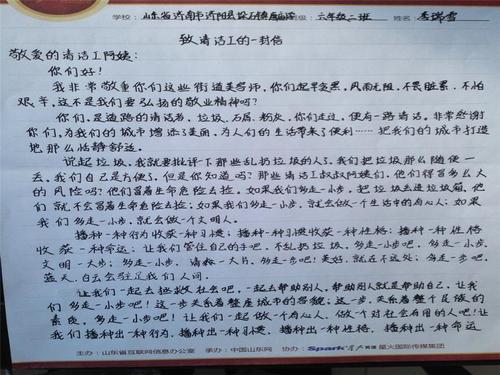 学校：山东省济南市济阳县 班级：六年级二班 姓名：李瑞雪
致清洁工的一封信
敬爱的清洁工阿姨：
你们好！
我非常敬重你们这些街道美容师，你们起早贪黑，风雨无阻，不畏脏累，不怕
艰辛，这不是我们要弘扬的敬业精神吗？
你们，是道路的清洁者，垃圾、石屑、粉灰，你们走过，便有一路清洁。非常感谢
你们，为我们的城市增添了美丽，为人们的生活带来了便利……把我们的城市打造
地那么恬静舒适。
说起垃圾，我就要批评下那些乱扔垃圾的人了。我们把垃圾那么随便一
丢，我们自己是方便了，但是你知道吗？那些清洁工叔叔阿姨们，他们得冒多么大
的风险吗？他们冒着生命危险去捡。如果我们多走一小步，把垃圾丢进垃圾箱，他
们就不会冒着生命危险去捡；如果我们多走一小步，就会做一个生活中的有心人；如果
我们多走一小步，就会做一个文明人。
播种一种行为收获一种习惯；播种一种习惯收获一种性格；播种一种性格
收获一种命运；让我们管住自己的手吧，不乱扔垃圾，多走一小步吧，多走一小步，
文明一大步；多走一小步，清洁一大片，多走一步吧！美好，就在不远处；多走一步吧，
蓝天、白云会驻足我们人间。
让我们一起去拯救社会吧，一起去帮助别人，帮助别人就是帮助自己，让我
们多走一小步吧！这一步关系着整座城市的容貌；这一步，关系着整个民族的
素质，多走一小步吧！让我们一起做一个有心人，做个对社会有用的人吧！让
我们播种出一种行为，播种出一种习惯，播种出一种性格，播种出一种命运
主办：山东省互联网信息办公室 承办：中国山东网 协办：Spark 星火英语 星火国际传媒集团